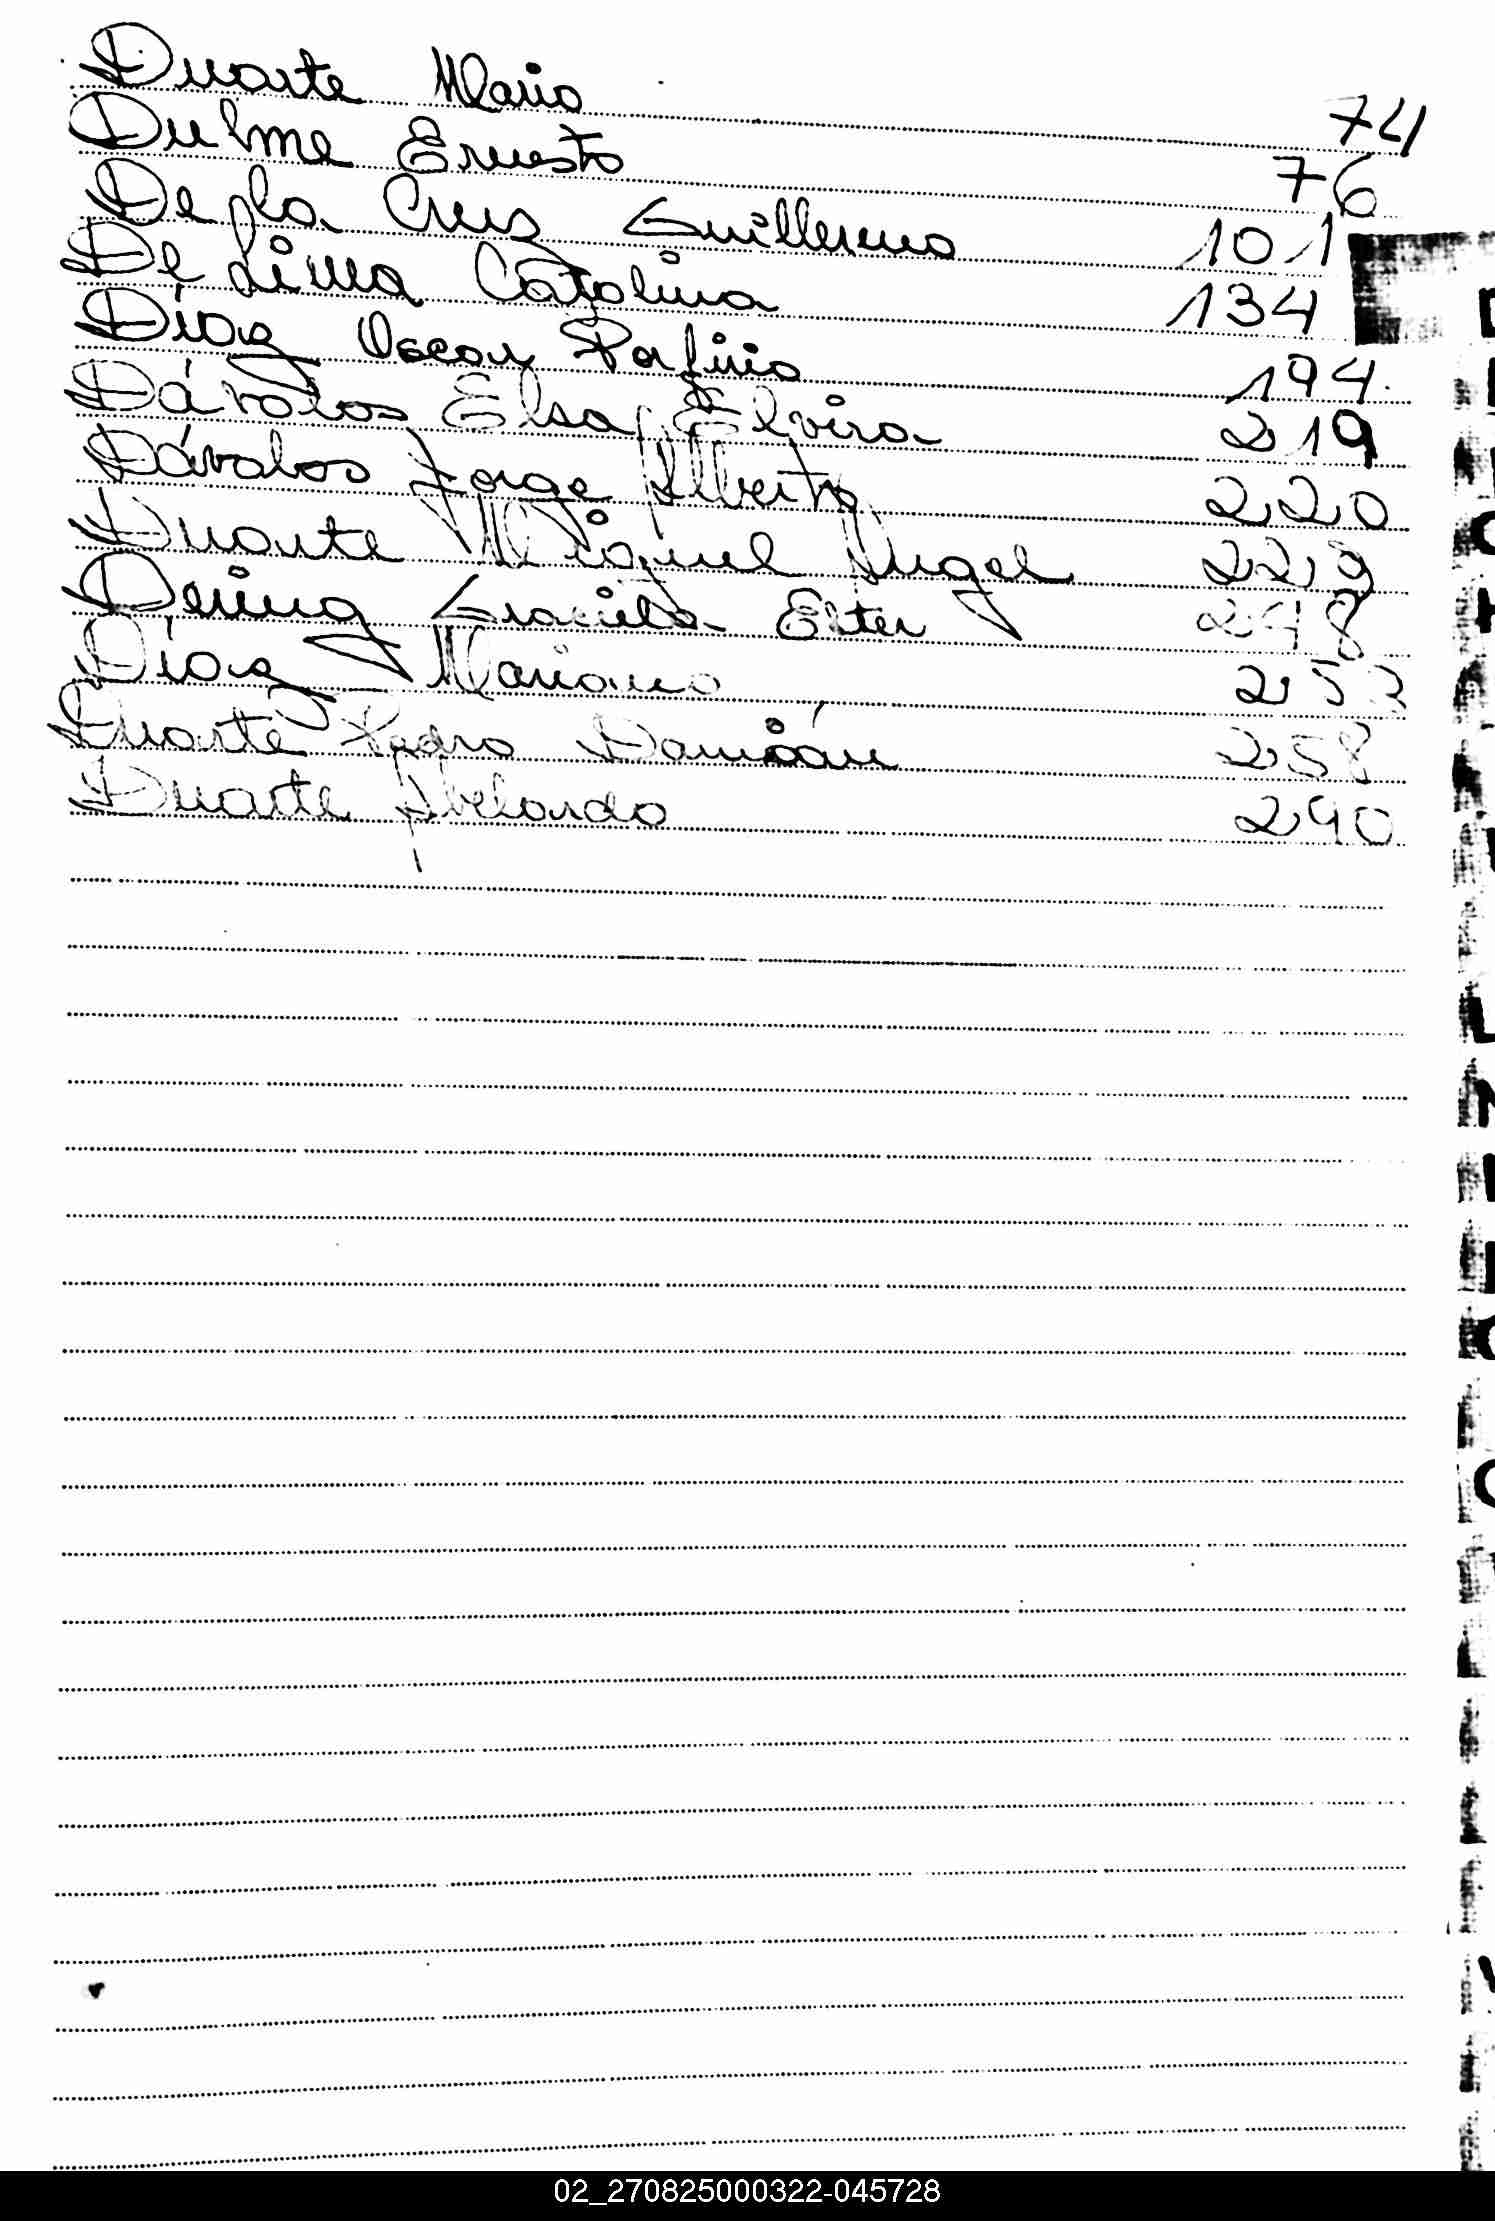 Duarte Mario 74
Dulme Ernesto 76
De la Cruz Guillermo 101
De Lima Catalina 134
Díaz Oscar Porfirio 194
Dávalos Elsa Elvira 219
Dávalos Jorge Alberto 220
Duarte Miguel Angel 229
Dening Graciela Ester 248
Díaz Mariano 253
Duarte Pedro Damián 258
Duarte Abelardo 290
D
02_270825000322-045728